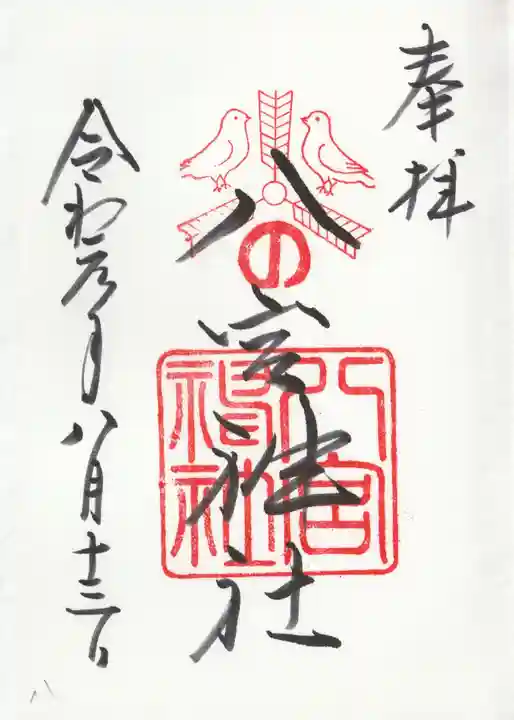 奉拝
八の宮神社
八宮神社
令和元年八月十三日
八